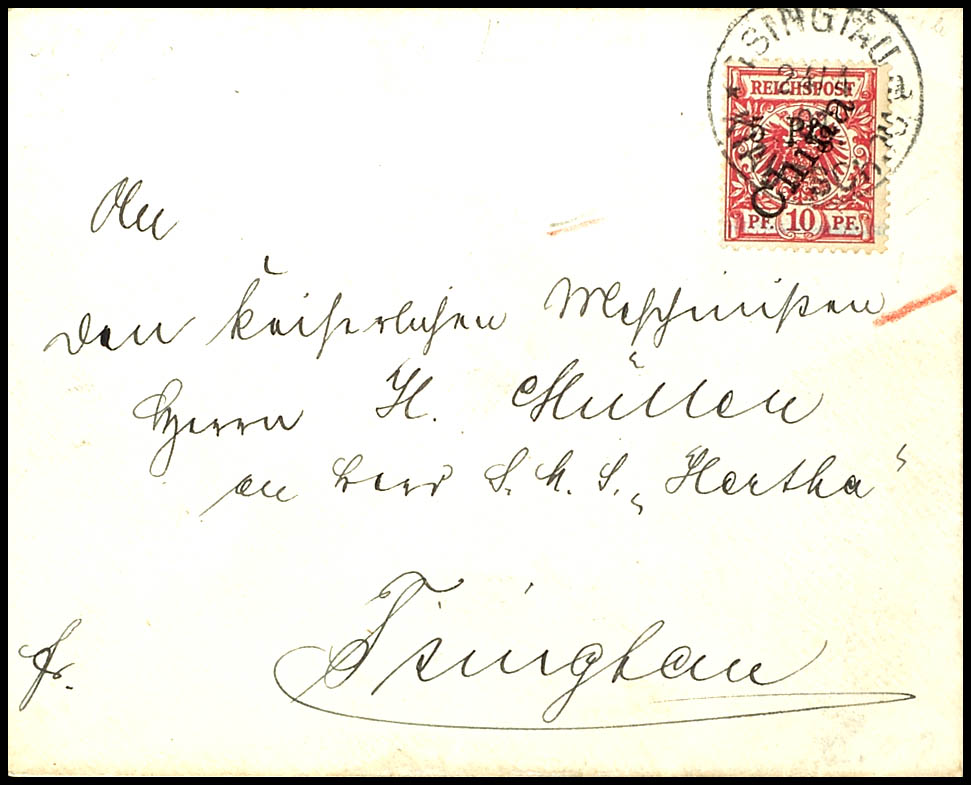 TSINGTAU
a
REICHSPOST
5 Pf.
China
PF. 10 PF.
An
den Kaiserlichen Maschinisten
Herrn H. Müller
an Bord S. M. S. „Hertha“
Tsingtau
fr.